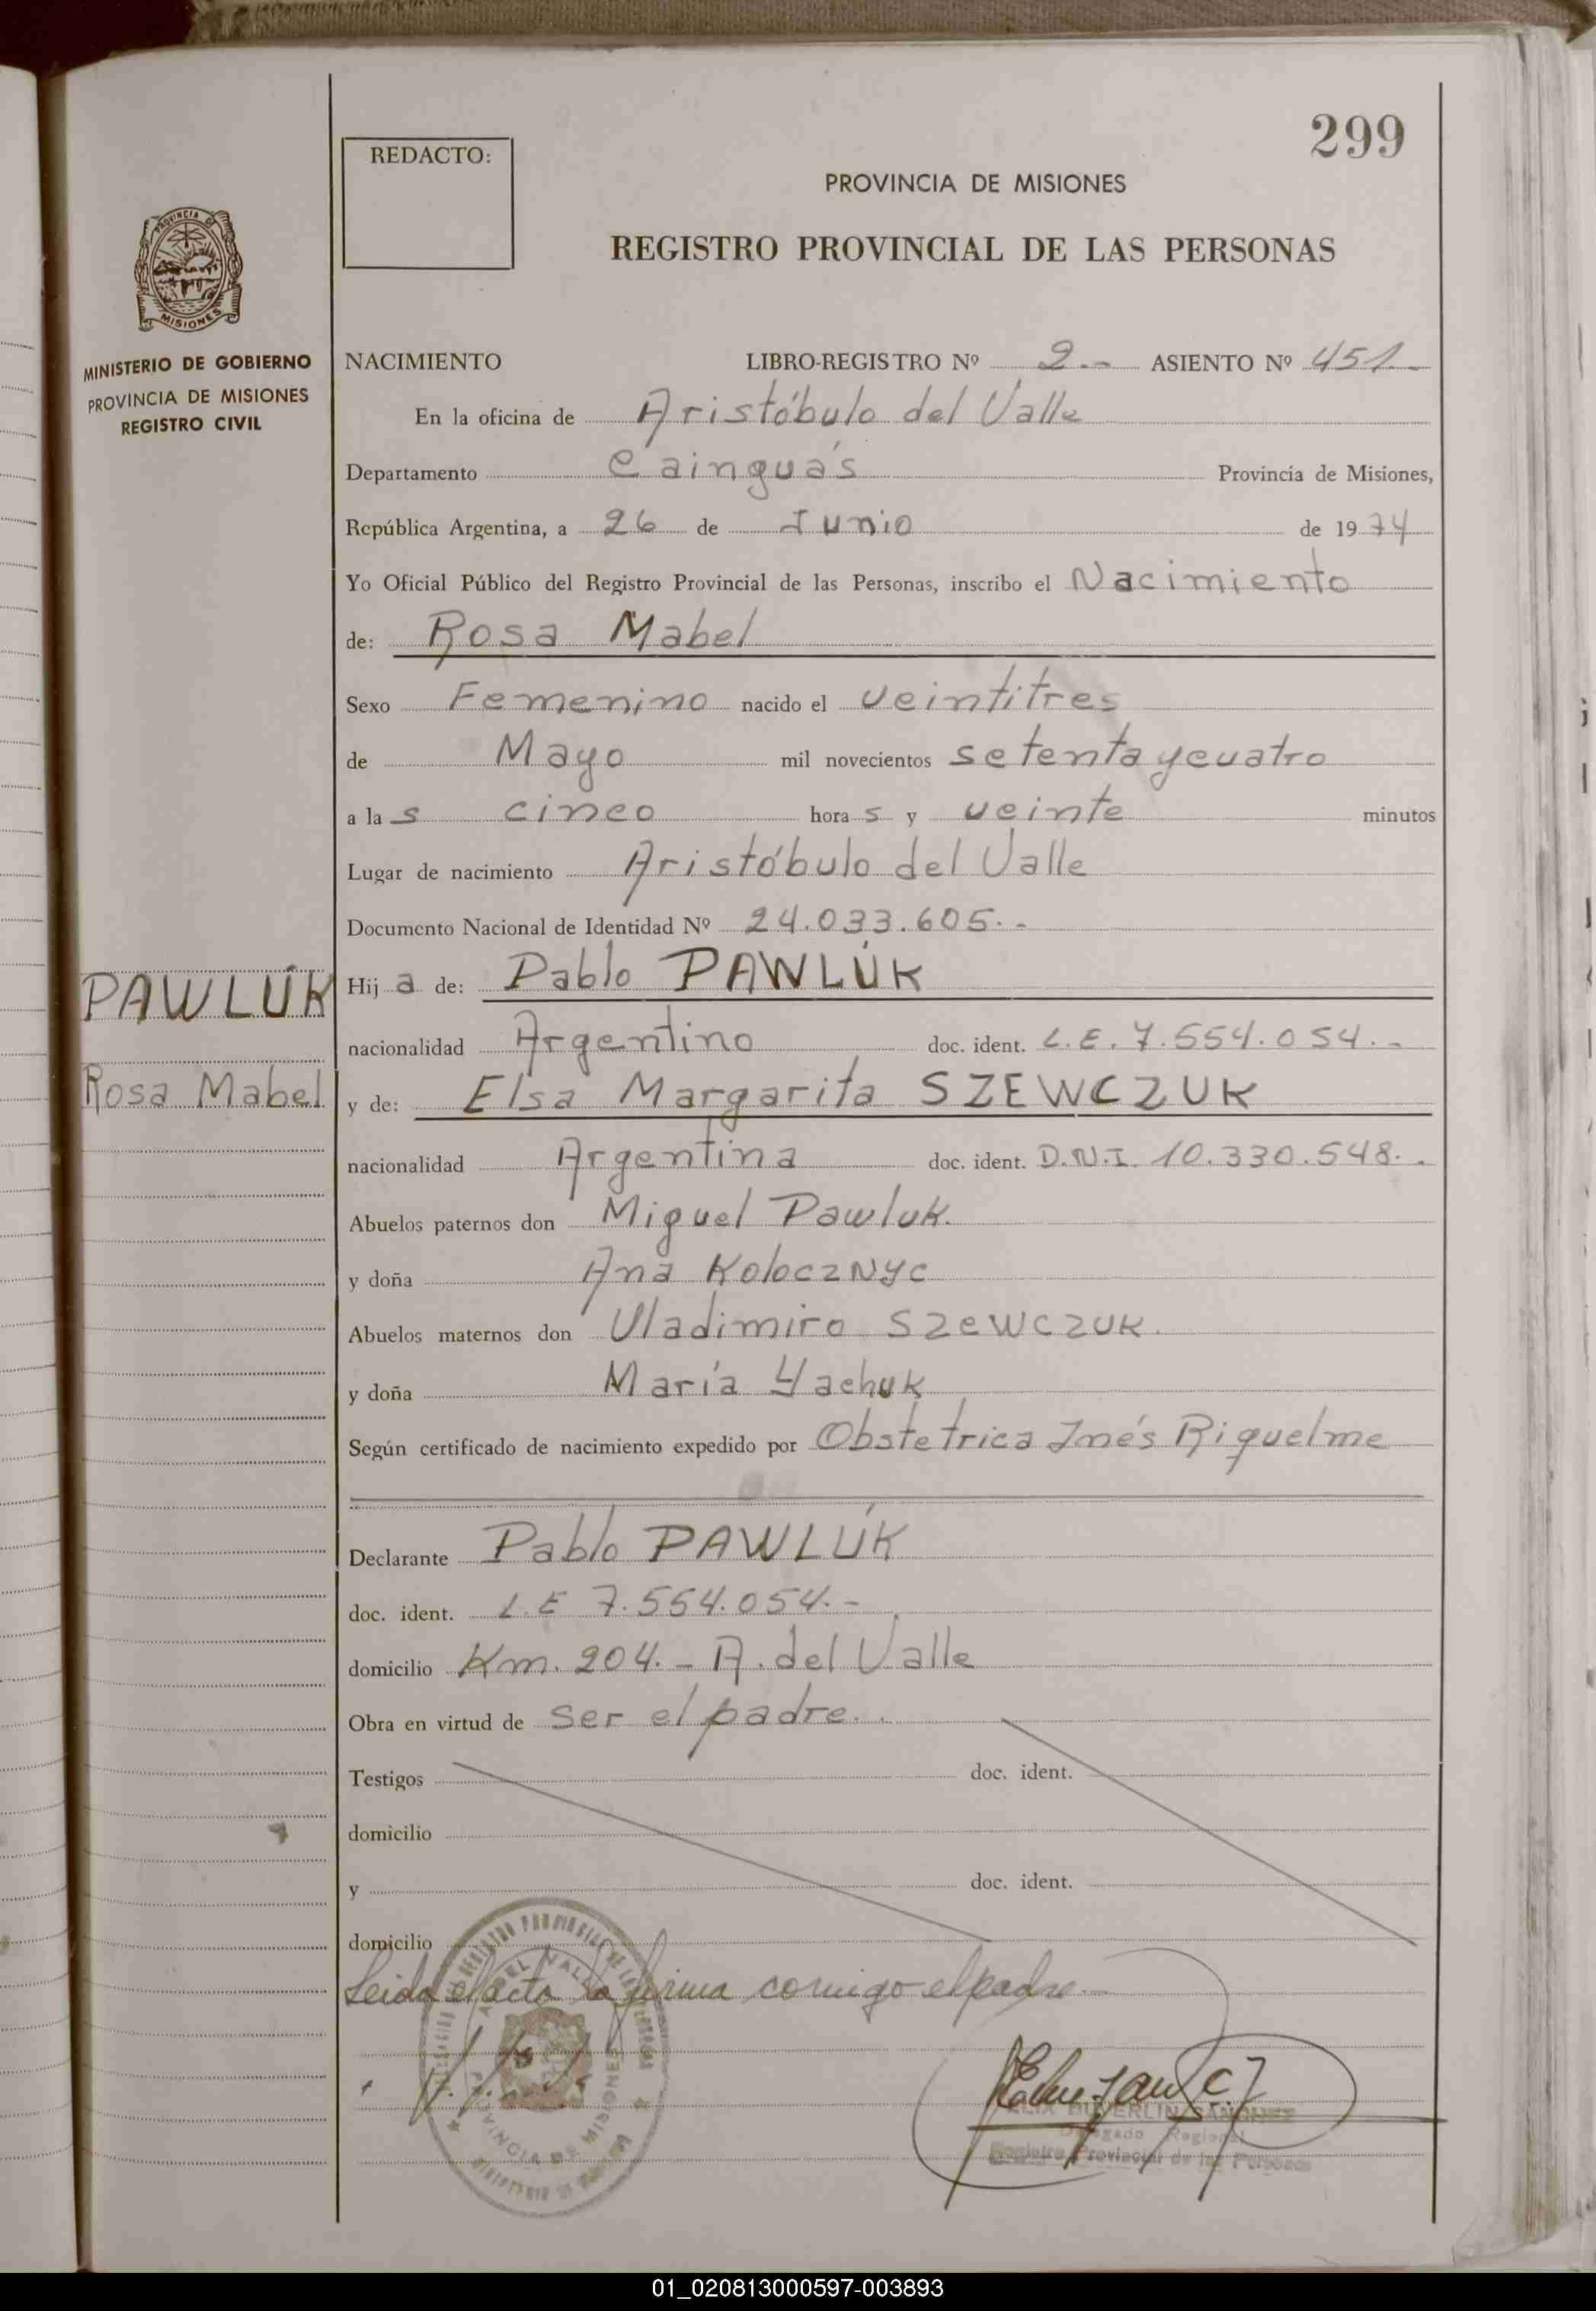 299
REDACTO:
PROVINCIA DE MISIONES
REGISTRO PROVINCIAL DE LAS PERSONAS
PROVINCIA DE
MISIONES
MINISTERIO DE GOBIERNO
PROVINCIA DE MISIONES
REGISTRO CIVIL
NACIMIENTO LIBRO-REGISTRO Nº 2.- ASIENTO Nº 451.-
En la oficina de Aristóbulo del Valle
Departamento Cainguás Provincia de Misiones,
República Argentina, a 26 de Junio de 1974
Yo Oficial Público del Registro Provincial de las Personas, inscribo el Nacimiento
de: Rosa Mabel
Sexo Femenino nacido el veintitres
de Mayo mil novecientos setenta y cuatro
a las cinco horas y veinte minutos
Lugar de nacimiento Aristóbulo del Valle
Documento Nacional de Identidad Nº 24.033.605.-
PAWLÚK
Rosa Mabel
Hija de: Pablo PAWLÚK
nacionalidad Argentino doc. ident. L.E. 7.554.054.-
y de: Elsa Margarita SZEWCZUK
nacionalidad Argentina doc. ident. D.N.I. 10.330.548..
Abuelos paternos don Miguel Pawluk.
y doña Ana Kolocznyc
Abuelos maternos don Vladimiro Szewczuk.
y doña María Yachuk
Según certificado de nacimiento expedido por Obstetrica Inés Riquelme
Declarante Pablo PAWLÚK
doc. ident. L.E 7.554.054.-
domicilio Km. 204.- A. del Valle
Obra en virtud de ser el padre..
Testigos doc. ident.
domicilio
y doc. ident.
domicilio
Leida el acta la firma comigo el padre.-
Delegado Regional
Registro Provincial de las Personas
01_020813000597-003893